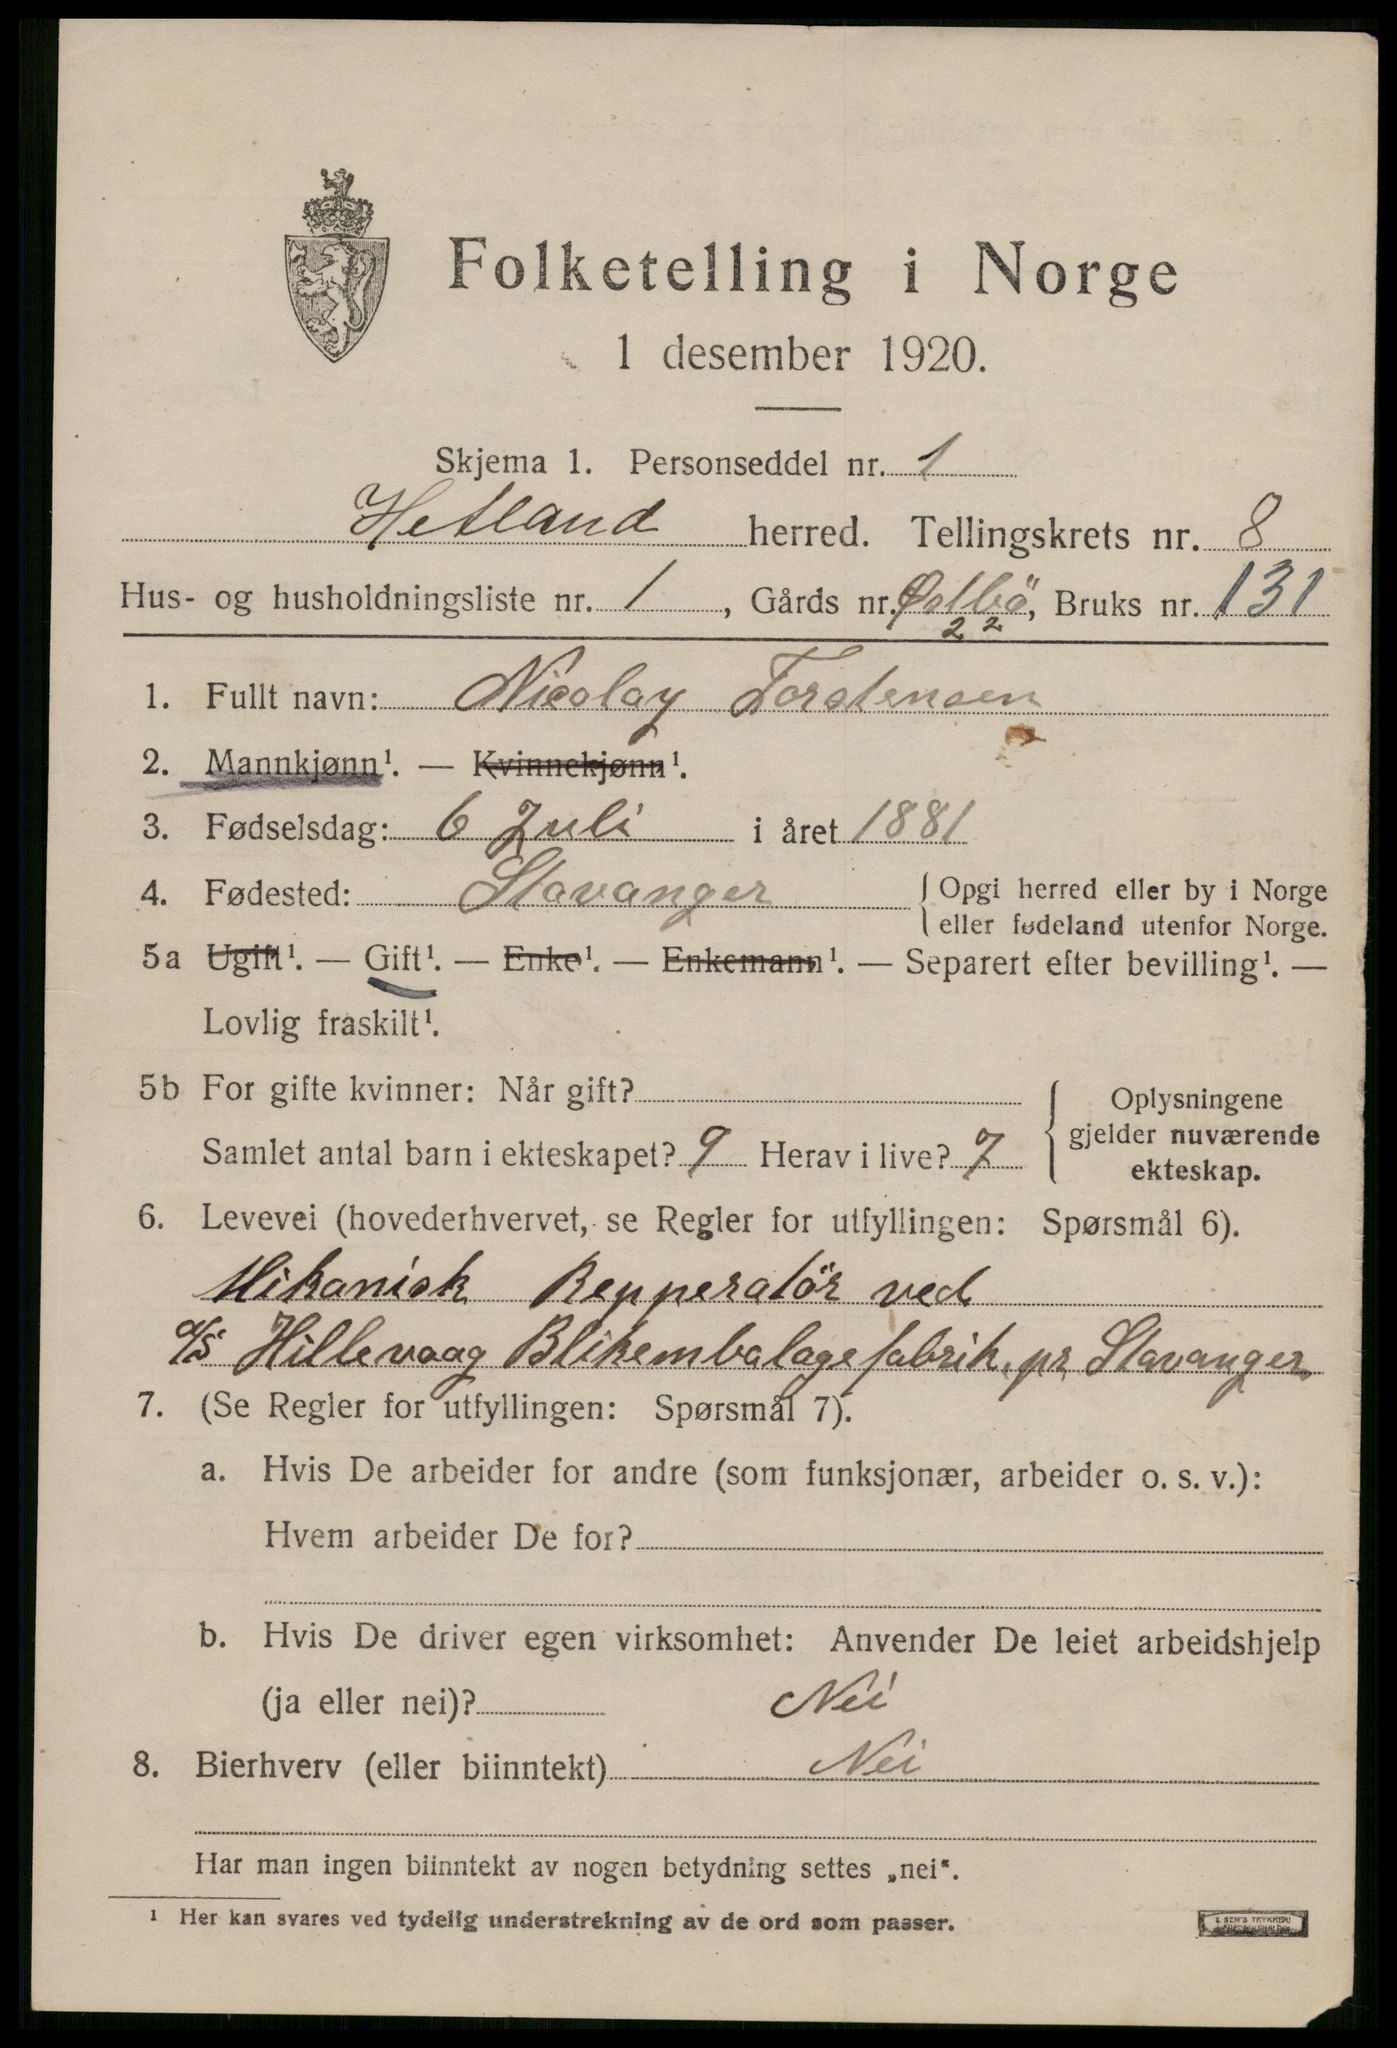 Folketelling i Norge
1 desember 1920.
Skjema 1. Personseddel nr. 1
Hetland herred. Tellingskrets nr. 8
Hus- og husholdningsliste nr. 1, Gårds nr. Østbö, Bruks nr. 131
22
1. Fullt navn: Nicolay Torstensen
2. Mannkjønn¹. — Kvinnekjønn¹.
3. Fødselsdag: 6 Juli i året 1881
4. Fødested: Stavanger { Opgi herred eller by i Norge
eller fødeland utenfor Norge.
5a Ugift¹. — Gift¹. — Enke¹. — Enkemann¹. — Separert efter bevilling¹. —
Lovlig fraskilt¹.
5b For gifte kvinner: Når gift? Oplysningene
gjelder nuværende
Samlet antal barn i ekteskapet? 9 Herav i live? 7 ekteskap.
6. Levevei (hovederhvervet, se Regler for utfyllingen: Spørsmål 6).
Mikanisk Repperatör ved
a/s Hillevaag Blikembalagefabrik pr Stavanger
7. (Se Regler for utfyllingen: Spørsmål 7).
a. Hvis De arbeider for andre (som funksjonær, arbeider o. s. v.):
Hvem arbeider De for?
b. Hvis De driver egen virksomhet: Anvender De leiet arbeidshjelp
(ja eller nei)? Nei
8. Bierhverv (eller biinntekt) Nei
Har man ingen biinntekt av nogen betydning settes „nei“.
¹ Her kan svares ved tydelig understrekning av de ord som passer.